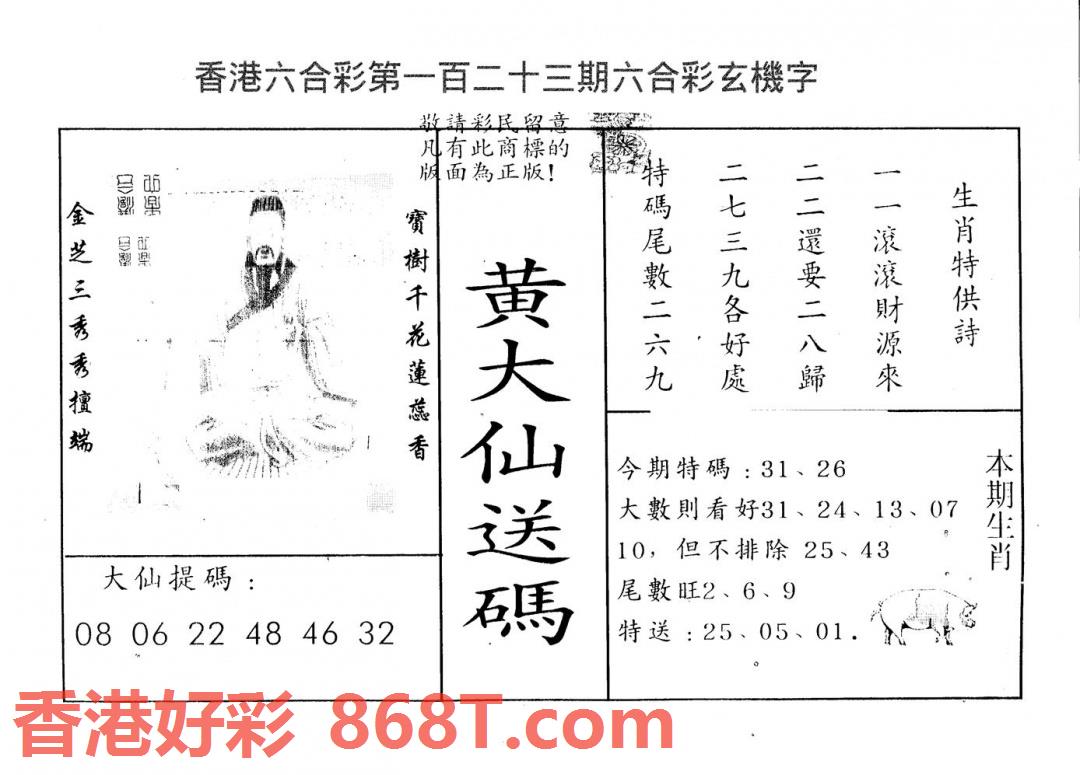 香港六合彩第一百二十三期六合彩玄機字
敬請彩民留意
凡有此商標的
版面為正版!
生肖特供詩
一一滾滾財源來
二二還要二八歸
二七三九各好處
特碼尾數二六九
黄大仙送碼
寶樹千花蓮蕊香
金芝三秀秀擅端
大仙提碼：
08 06 22 48 46 32
本期生肖
今期特碼：31、26
大數則看好31、24、13、07
10，但不排除 25、43
尾數旺2、6、9
特送：25、05、01．
香港好彩 868T.com